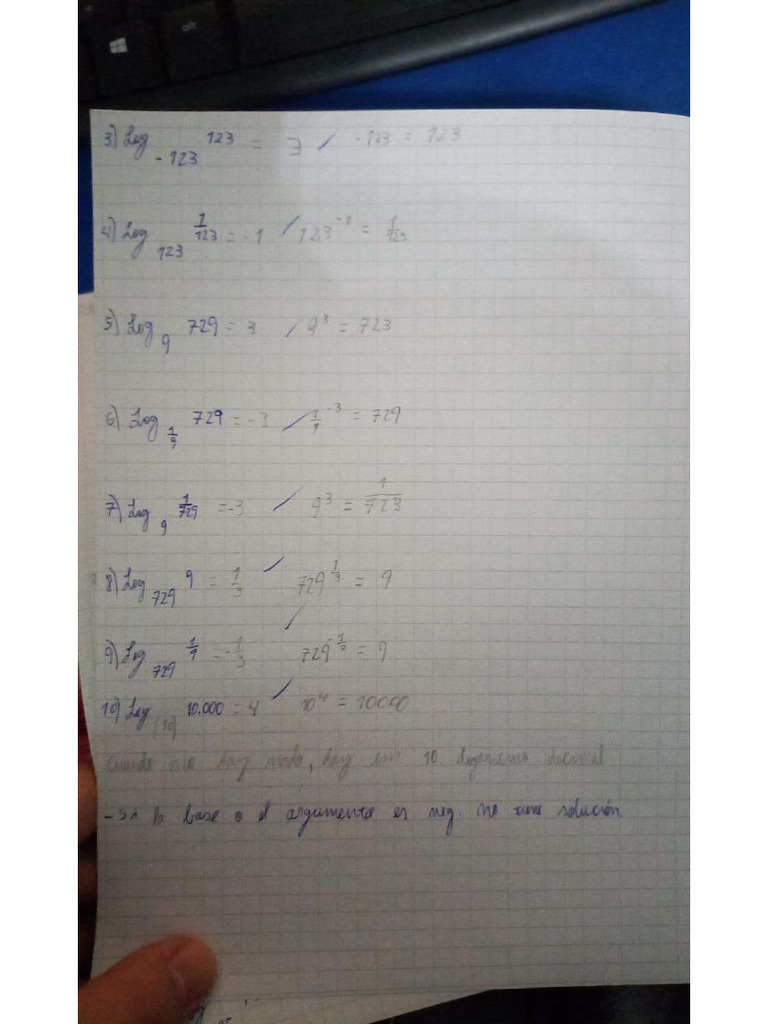 3) Log -123 123 = ∃ / -123 = 123
4) Log 123 1/123 = -1 / 123^-1 = 1/123
5) Log 9 729 = 3 / 9^3 = 723
6) Log 1/9 729 = -3 / 1/9^-3 = 729
7) Log 9 1/729 = -3 / 9^3 = 1/723
8) Log 729 9 = 1/3 / 729^1/3 = 9
9) Log 729 1/9 = -1/3 / 729^-1/3 = 9
10) Log (10) 10.000 = 4 / 10^4 = 10000
Cuando no hay nada, hay un 10 Logaritmo decimal
- Si la base o el argumento es neg. no tiene solución.